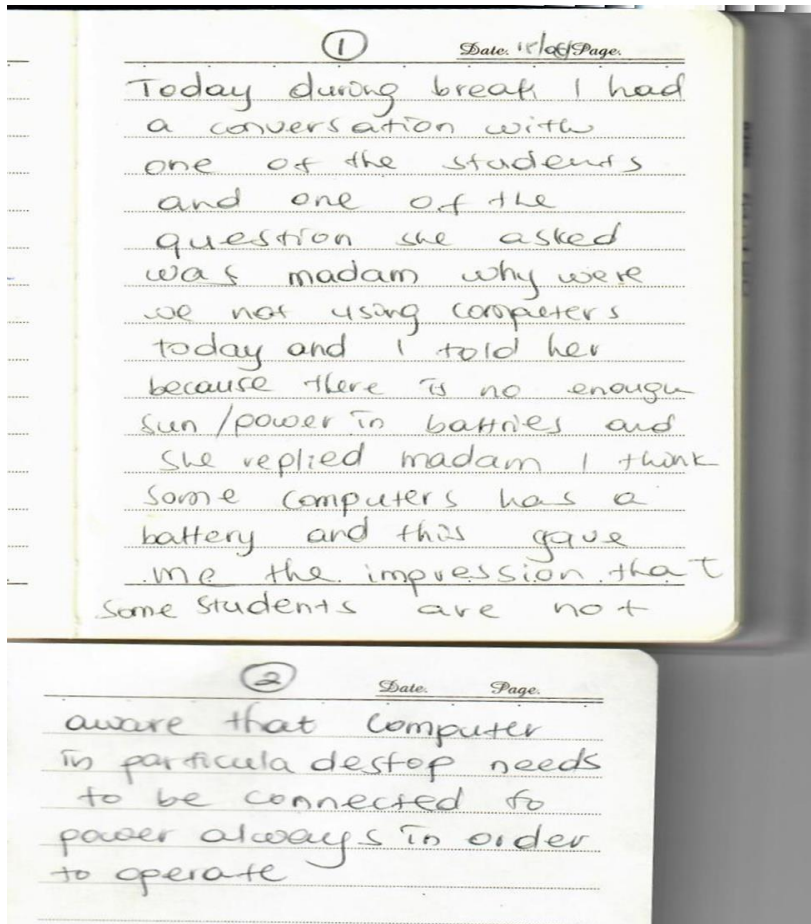 1
Date. Page.
Today during break I had
a conversation with
one of the students
and one of the
question she asked
was madam why were
we not using computers
today and I told her
because there is no enough
sun/power in battries and
she replied madam I think
some computers has a
battery and this gave
me the impression that
some students are not
2
Date. Page.
aware that computer
in particula destop needs
to be connected to
power always in order
to operate